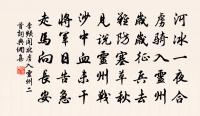 河冰一夜合
虜騎入靈州
歲歲征兵去
難防塞草秋
見說靈州戰
沙中血未干
將軍日告急
走馬向長安
李頻聞北虜入靈州二
首詞典網集